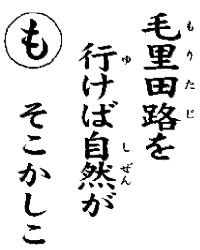 毛里田路を
行けば自然が
も そこかしこ
もりたじ
ゆ しぜん